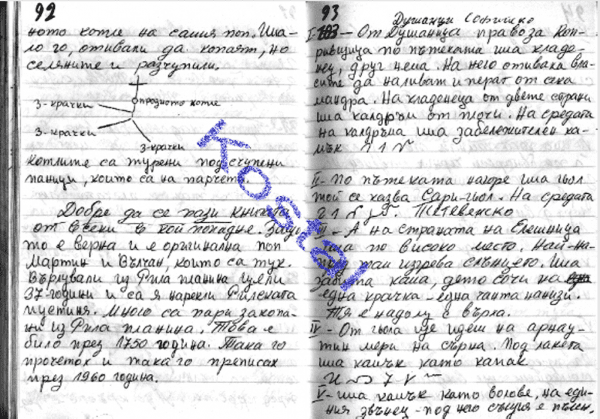 92
ното котле на самия поп. Има-
ло го, отивали да копаят, но
селяните ги разчупили.
3-крачки
празното котле
3-крачки
3-крачки
Котлите са турени под счупени
паници, които са на парчета.
Добре да се пази книгата
от всеки в кой попадне. Защ
то е верна и е оргинална поп
Мартин и Вълчан, които са тук.
Вървували из Рила планина цели
37 години и са я нарекли Рилската
пустиня. Много са пари закопа-
ни из Рила планина. Това е
било през 1750 година. Така го
прочетох и така го преписах
през 1960 година.
Kostal
93
Душанци Софийско
I - От Душаница право за Коп-
ривщица по пътеката има кладе-
нец, друг нема. На него отивали вла-
сите да наливат и перат от сека
мандра. На кладенеца от двете страни
има калдръм от плочи. На средата
на калдръма има забележителен ка-
мък
II - По пътеката нагоре има гьол
той се казва Сари-гьол. На средата
Тетевенско
III - А на страната на Елешница
има по високо место. Най-на-
пред там изгрева слънцето. Има
забита кама, дето сочи на
една крачка - една танта нанизи.
Тя е надолу с върла.
IV - От гьола где идеш на арнау-
тин мери на сърна. Под лакета
има камък като капак
V - има камък като волове, на еди-
ния звънец - под него същия е пълен